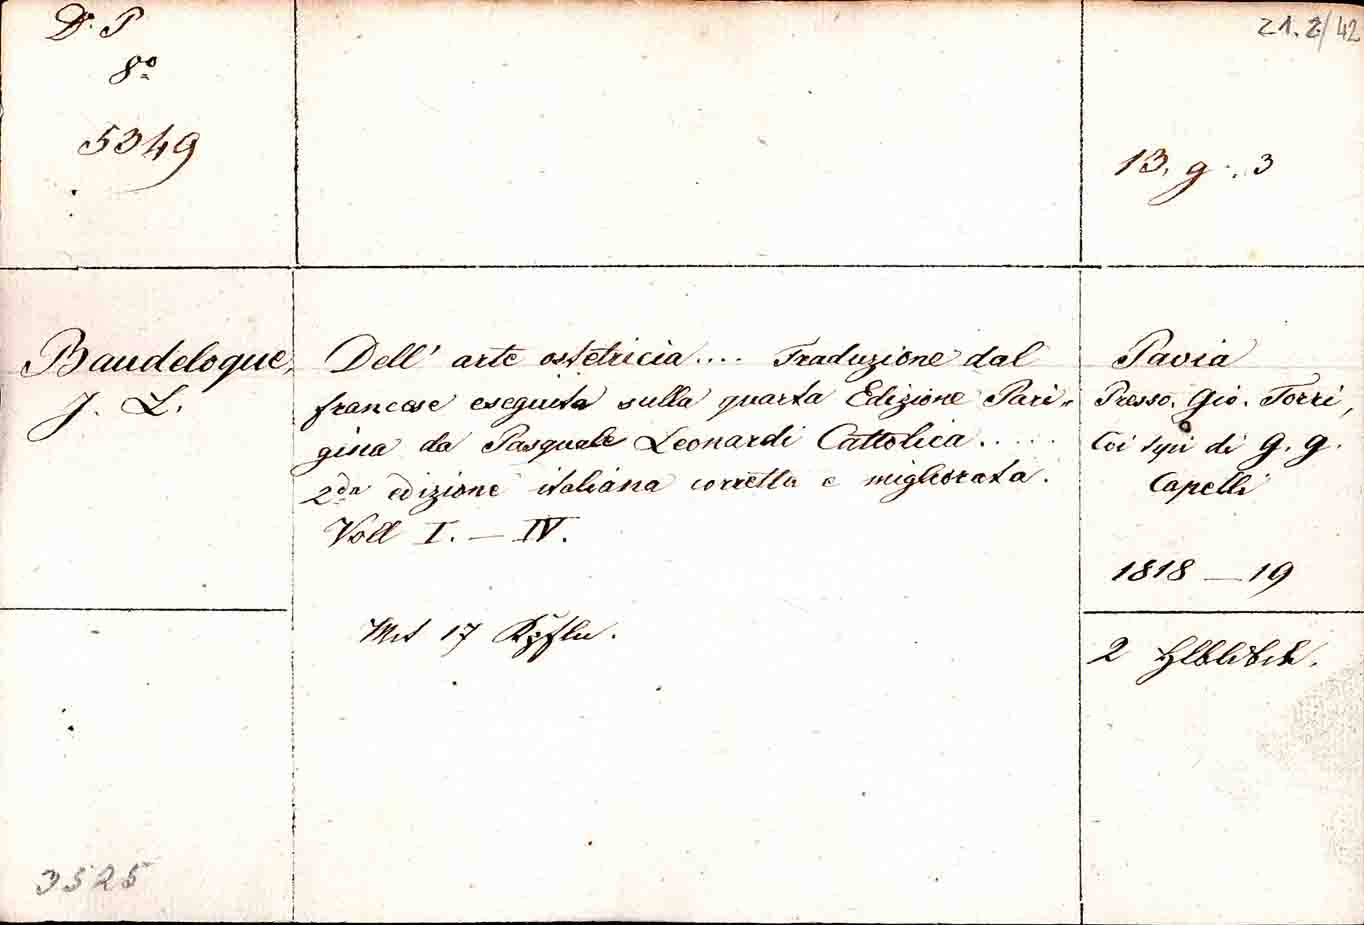 D. P
8°
5349
21. 2/42
13. g. 3
Baudeloque,
J. L.
Dell' arte ostetricia.... Traduzione dal
francese eseguita sulla quarta Edizione Pari-
gina da Pasquale Leonardi Cattolica.....
2da edizione italiana corretta e migliorata.
Voll I. — IV.
Mit 17 Kpftln.
Pavia
Presso. Gio. Torri,
Coi tipi di G. G.
Capelli
1818 — 19
2 Hlbldrbde.
3525